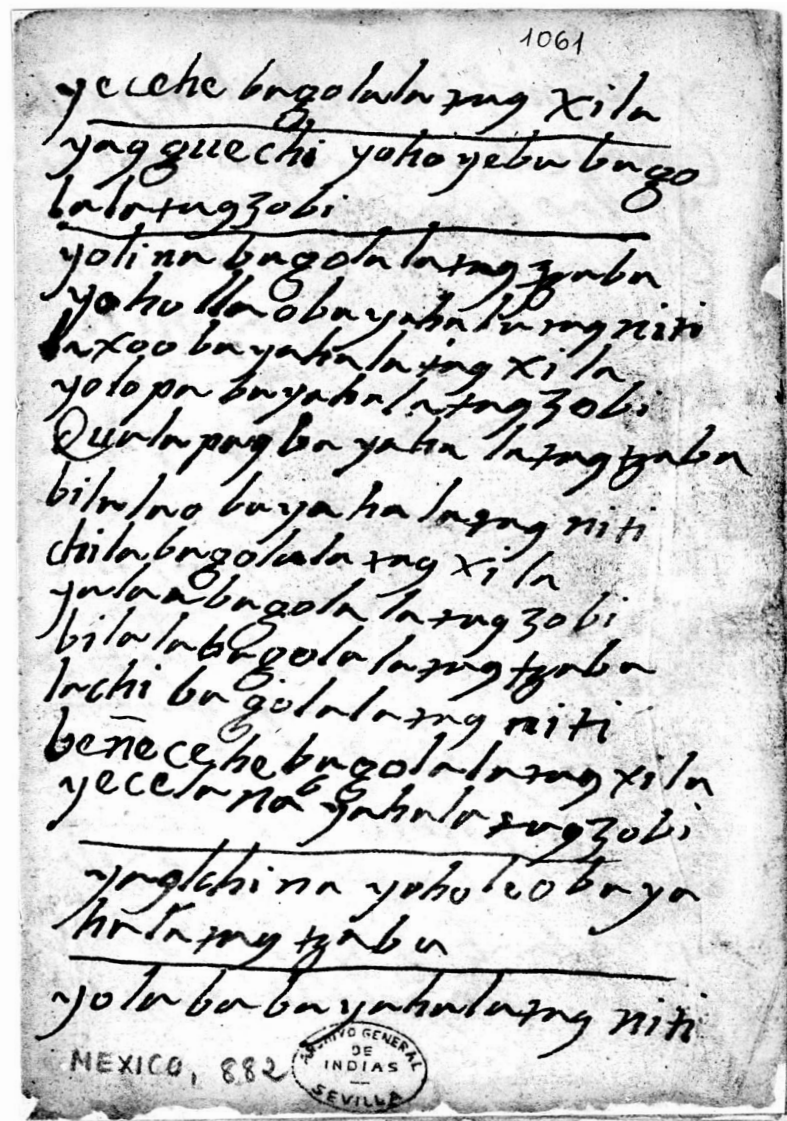 1061
yecehe bagolala tag xila
yag guechi yoho yebaa bago
lala tag zobi
yolina bagolala tag tzaba
yoho llao bayahala tag niti
laxoo bayahala tag xila
yolopa bayahala tag zobi
Qualapag bayaha la tag tzaba
bilalao bayahala tag niti
chila bagolala tag xila
yalaa bagolala tag zobi
bilala bagolala tag tzaba
lachi bagolala tag niti
beñecehe bagolala tag xila
yecelana bayahala tag zobi
yag china yoho leo baya
hala tag tzaba
yolaba bayahala tag niti
MEXICO, 882
ARCHIVO GENERAL
DE
INDIAS
SEVILLA